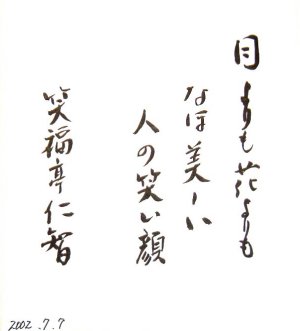 月よりも花よりも
なほ美しい
人の笑い顔
笑福亭仁智
2002.7.7